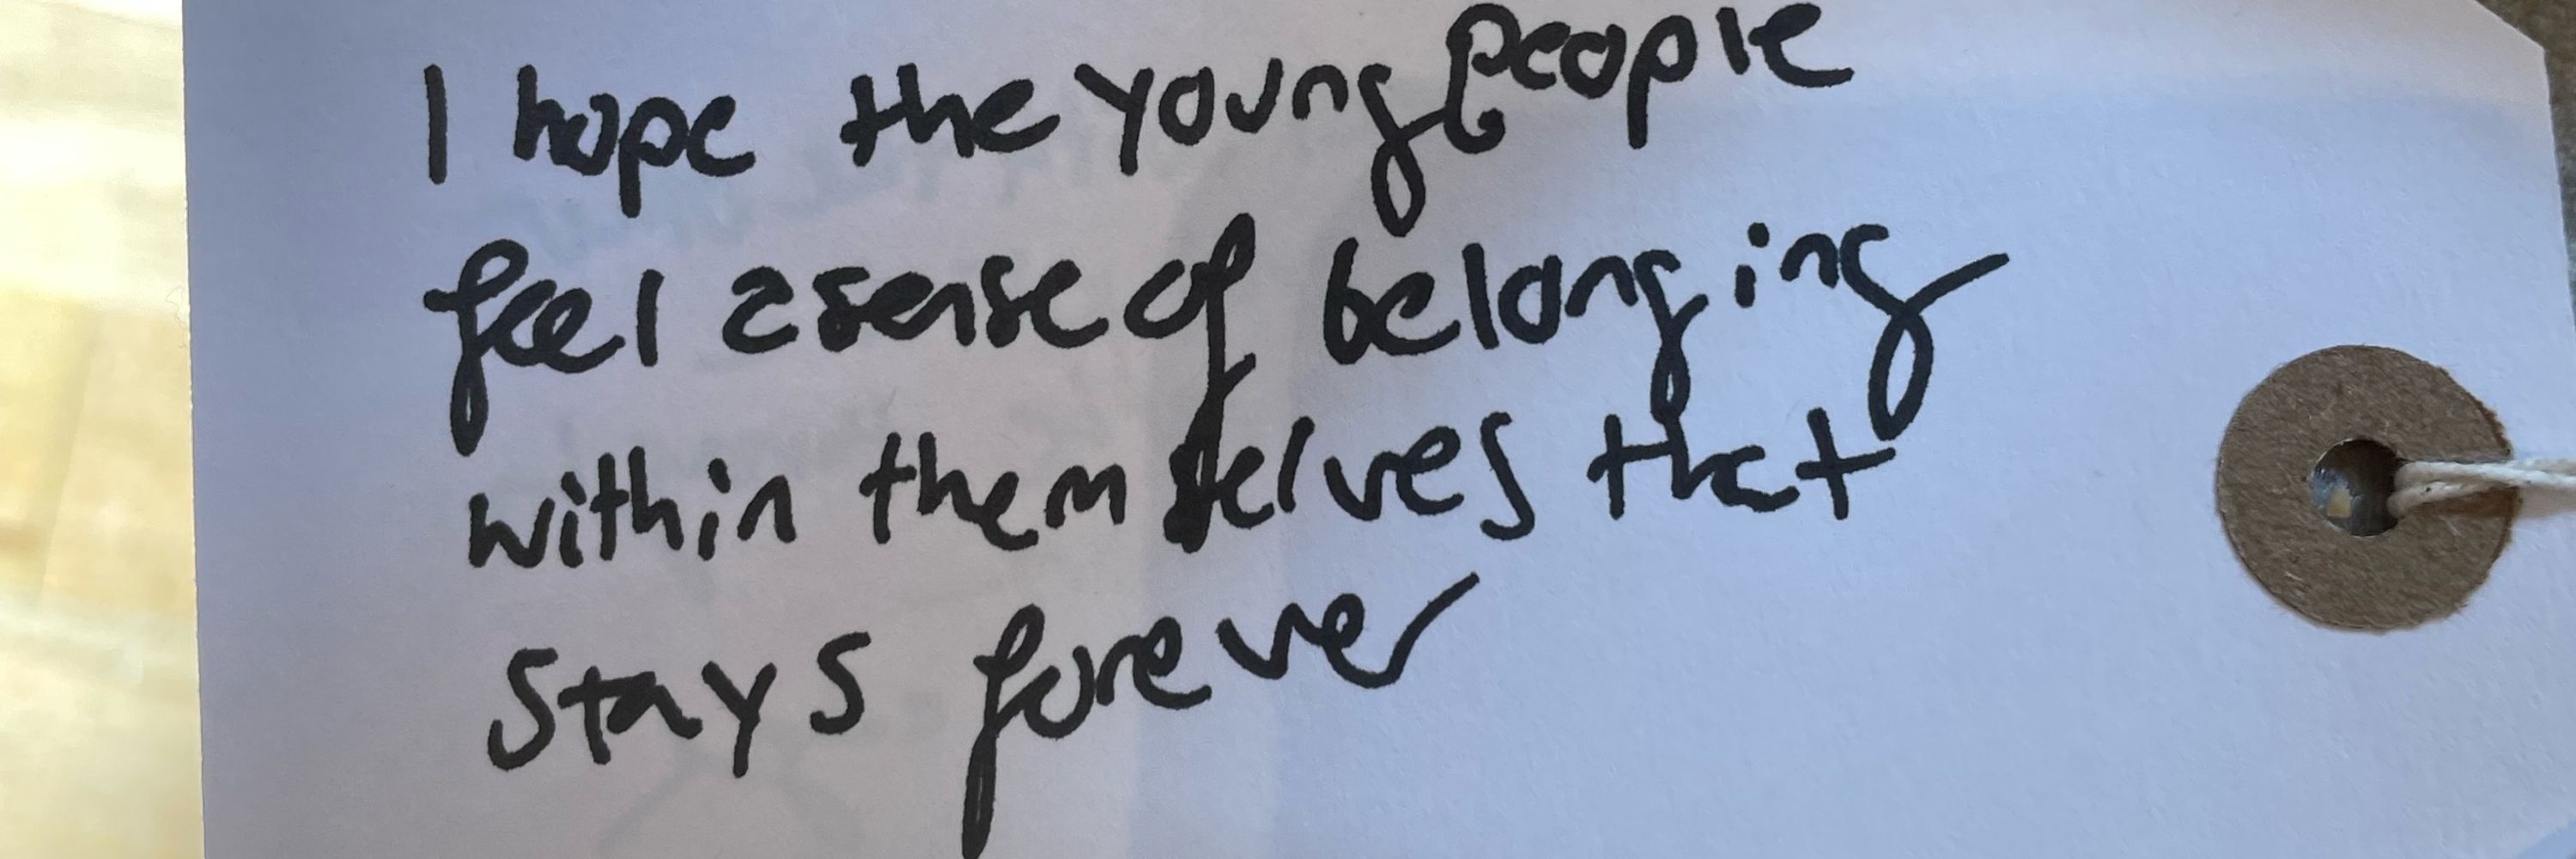 I hope the young people
feel a sense of belonging
within themselves that
stays forever